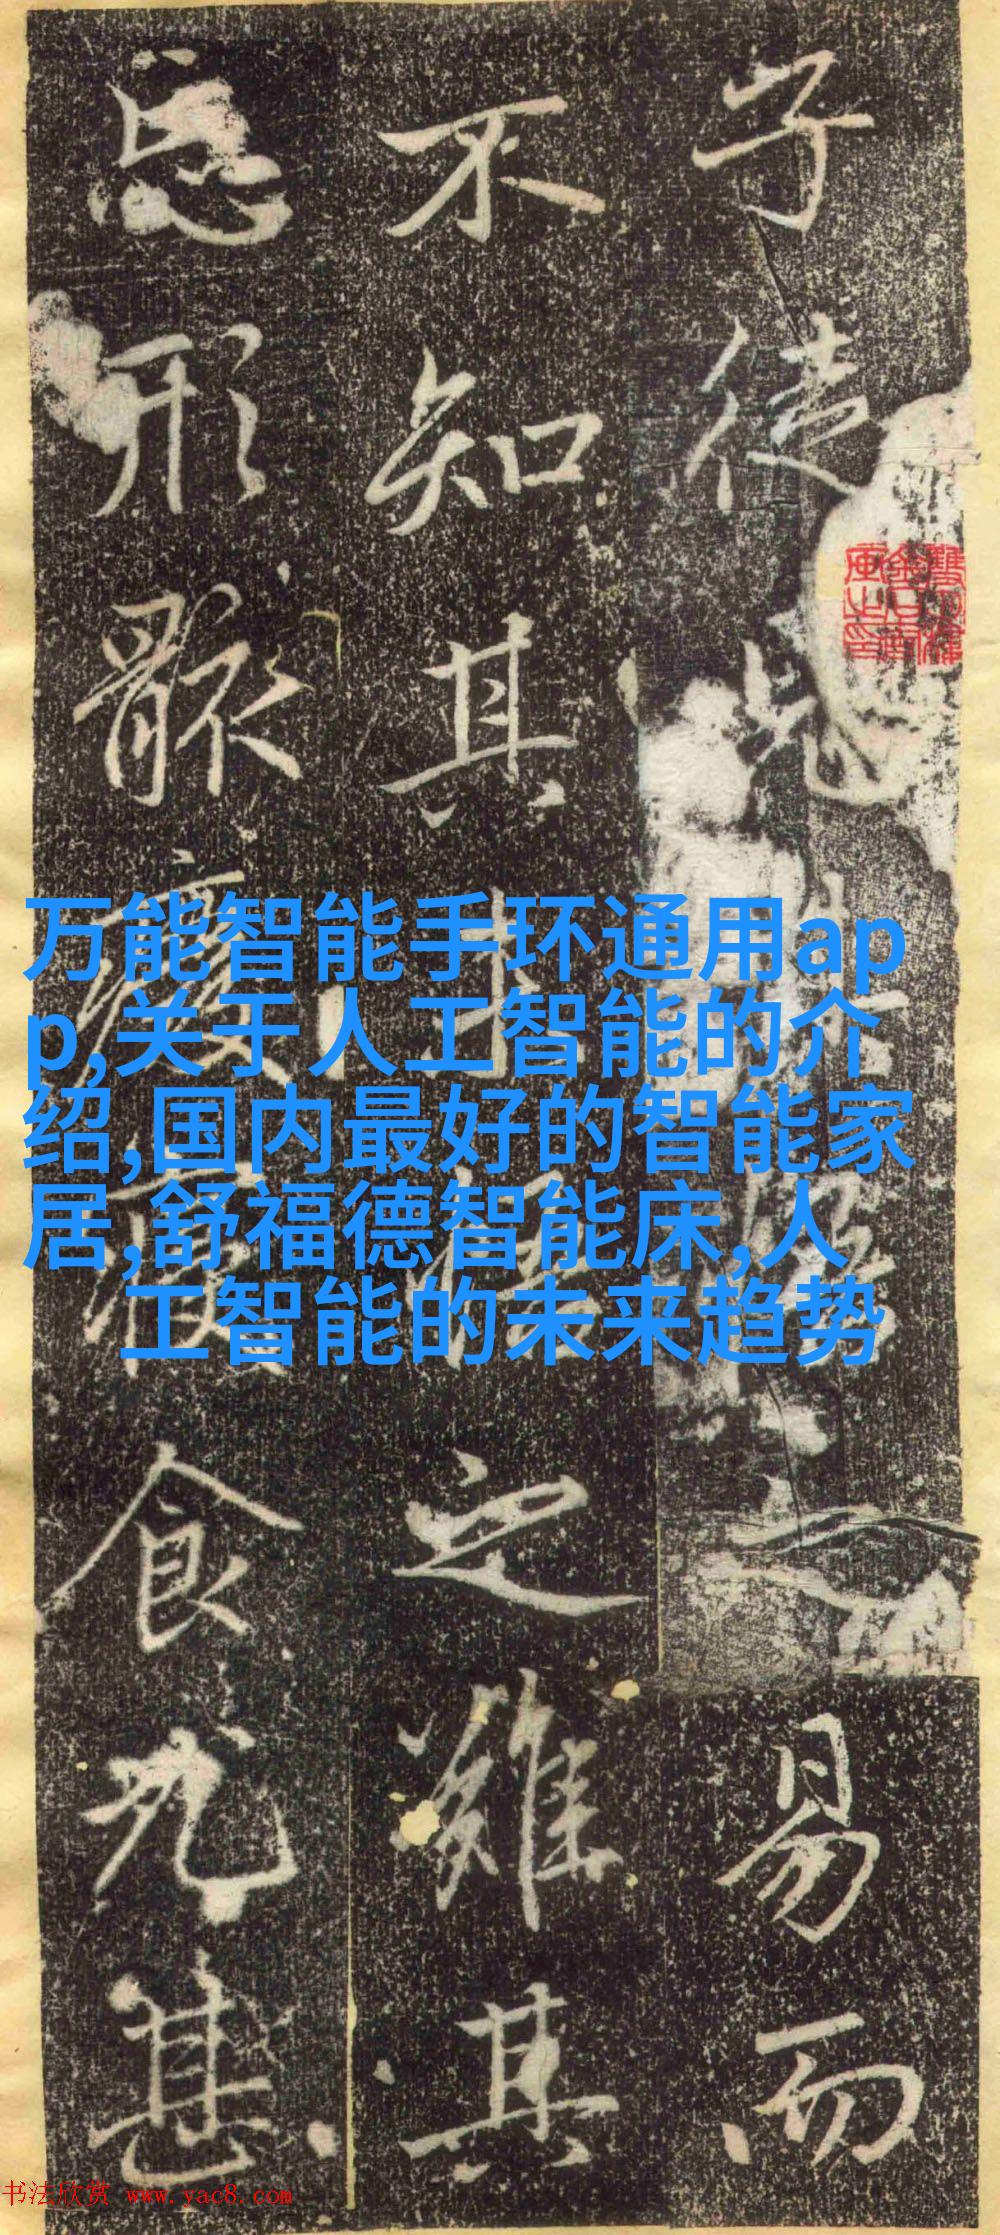 子徒見之易而
不知其之難其
忘形骸廢寢食尤甚
万能智能手环通用ap
p,关于人工智能的介
绍,国内最好的智能家
居,舒福德智能床,人
工智能的未来趋势
书法欣赏 www.yac8.com